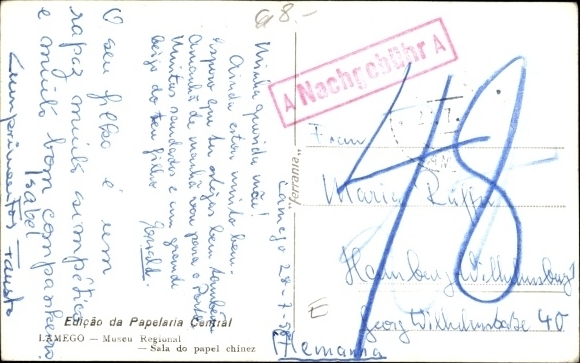 8.-
A Nachgebühr A
48
Lamego 28-7-58
Minha querida mãe!
Ainda estou muito bem.
Espero que tu estejas bem também.
Amanhã de manhã vou para o Porto.
Muitas saudades e um grande
beijo do teu filho
O seu filho é um
rapaz muito simpático
e muito bom companheiro.
Isabel
Cumprimentos Fausto
Frau
Maria
Hamburg-Wilhelmsburg 1
Georg Wilhelmstraße 40
Alemanha
E
Edição da Papelaria Central
LAMEGO — Museu Regional
— Sala do papel chinez